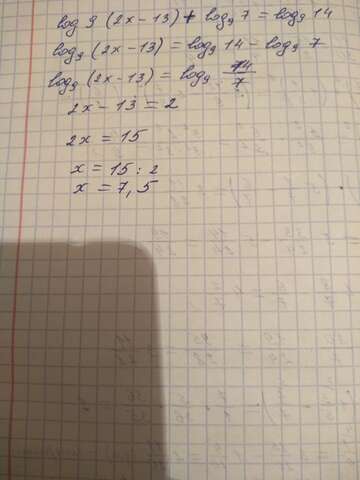 log 9 (2x-13) + log₉ 7 = log₉ 14
log₉ (2x-13) = log₉ 14 - log₉ 7
log₉ (2x-13) = log₉ 14/7
2x - 13 = 2
2x = 15
x = 15 : 2
x = 7,5